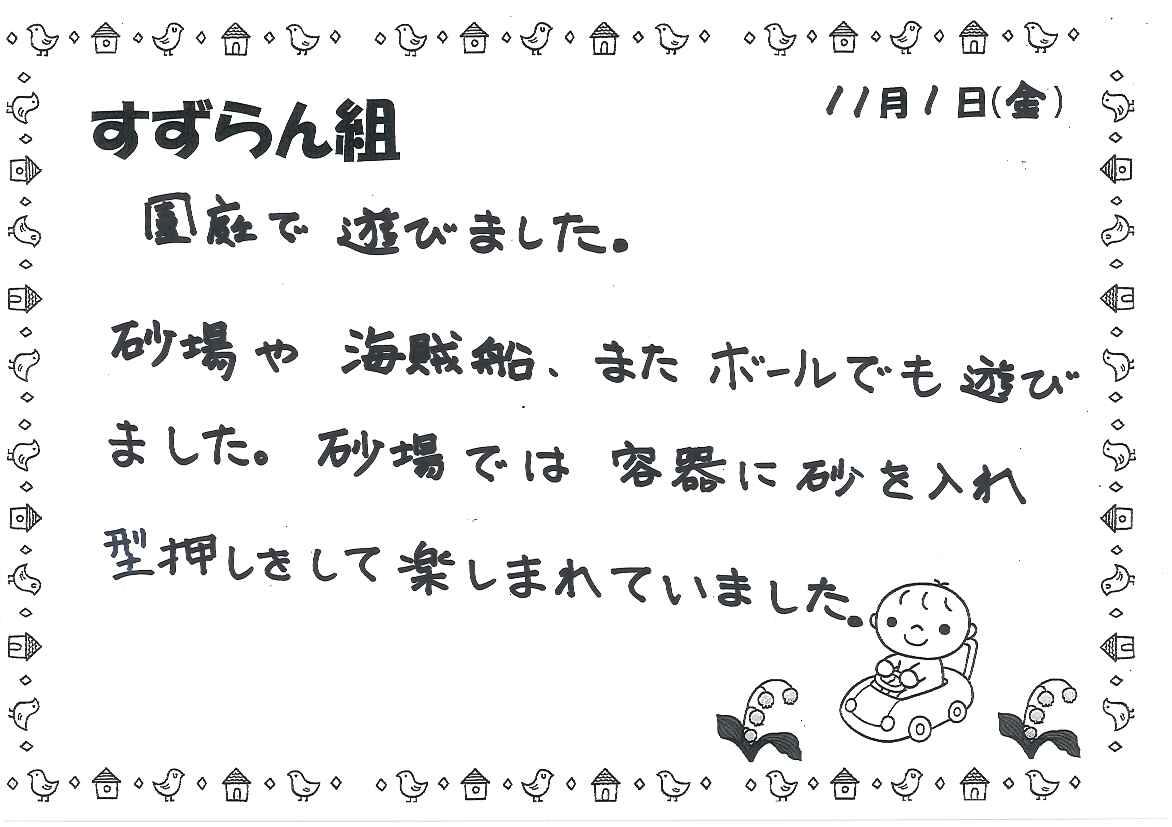 11月1日(金)
すずらん組
園庭で遊びました。
砂場や海賊船、またボールでも遊び
ました。砂場では容器に砂を入れ
型押しをして楽しまれていました。